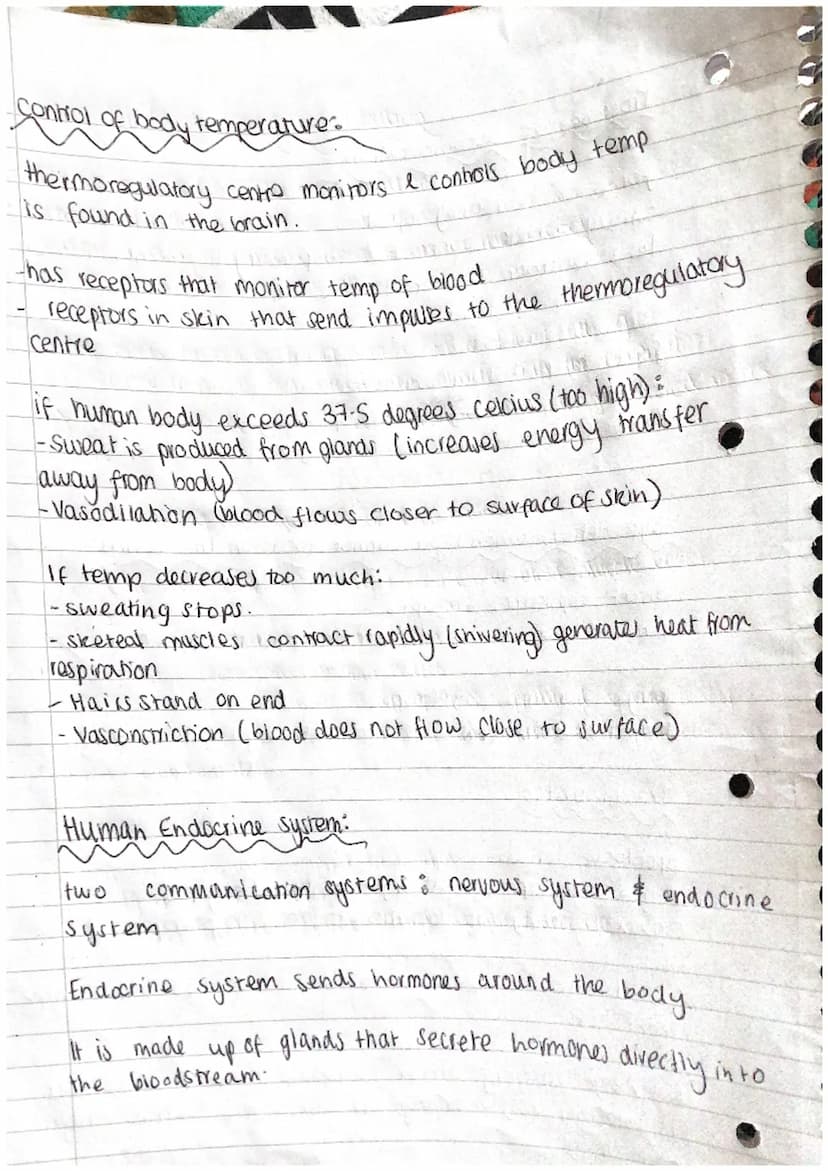 Control of body temperature:
thermoregulatory centre monitors & controls body temp
is found in the brain.
-has receptors that monitor temp of blood
- receptors in skin that send impulses to the thermoregulatory
centre
if human body exceeds 37.5 degrees celcius (too high):
-Sweat is produced from glands (increases energy transfer
away from body)
-Vasodilation (blood flows closer to surface of skin)
If temp decreases too much:
- sweating stops.
- skeletal muscles contract rapidly (shivering) generates heat from
respiration
- Hairs stand on end
- Vasconstriction (blood does not flow close to surface)
Human Endocrine system:
two communication systems : nervous system & endocrine
system
Endocrine system sends hormones around the body.
It is made up of glands that secrete hormones directly into
the bloodstream.